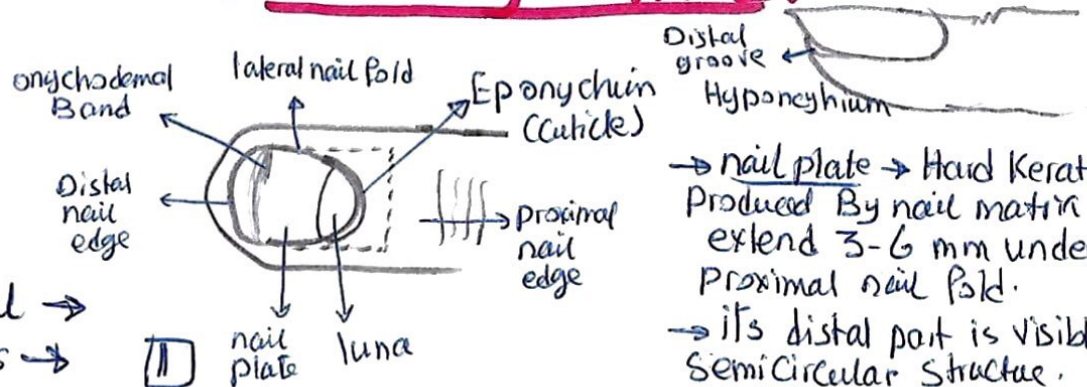 onychodemal
Band
lateral nail fold
Eponychuin
(Cuticle)
Distal
nail
edge
proximal
nail
edge
nail
plate
luna
Distal
groove
Hyponcyhium
→ nail plate → Hard Kerat
Produced By nail matrix
extend 3-6 mm unde
Proximal nail fold.
→ its distal part is visibl
Semicircular structue.